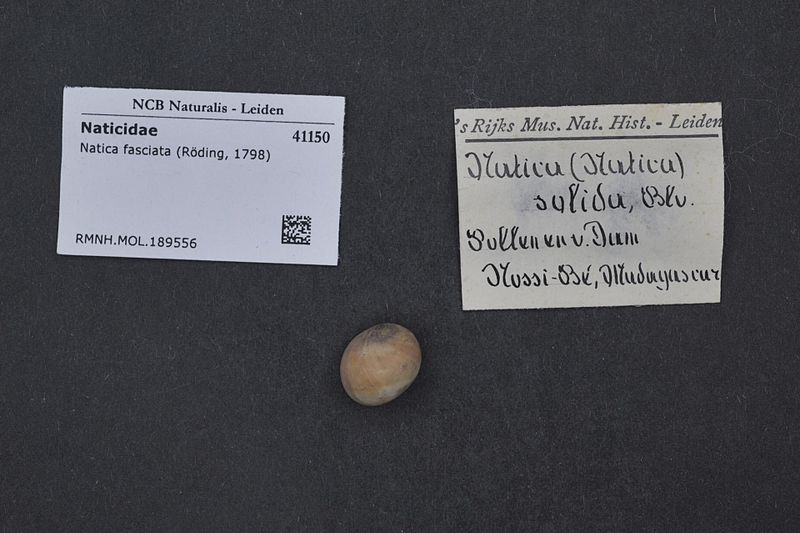 NCB Naturalis - Leiden
Naticidae 41150
Natica fasciata (Röding, 1798)
RMNH.MOL.189556
's Rijks Mus. Nat. Hist. - Leiden
Natica (Natica)
solida, Blv.
Pollen en v. Dam
Nossi-Bé, Madagascar